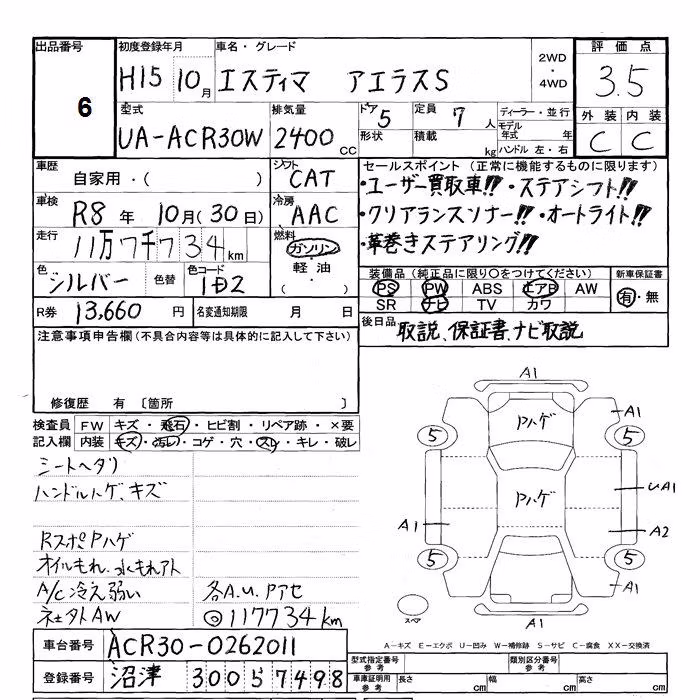 出品番号
6
初度登録年月
H15 10月
車名・グレード
エスティマ アエラスS
2WD
・
4WD
評価点
3.5
型式
UA-ACR30W
排気量
2400 CC
ドア 5
形状
定員 7 人
積載 kg
ディーラー・並行
モデル年式 年
ハンドル 左・右
外装 内装
C C
車歴
自家用・( )
シフト
CAT
車検
R8 年 10月(30日)
冷房
AAC
走行
11万7千734 km
燃料
ガソリン
・
軽油
・
( )
色
シルバー
色替
色コード
1D2
R券 13,660 円
名変通知期限 月 日
セールスポイント (正常に機能するものに限ります)
・ユーザー買取車!! ・ステアシフト!!
・クリアランスソナー!! ・オートライト!!
・革巻きステアリング!!
装備品 (純正品に限り○をつけてください)
新車保証書
PS PW ABS エアB AW
SR ナビ TV カワ
有・無
後日品
取説、保証書、ナビ取説
注意事項申告欄 (不具合内容等は具体的に記入して下さい)
修復歴 有 〔箇所 〕
検査員記入欄
FW キズ・飛石・ヒビ割・リペア跡・×要
内装 キズ・汚レ・コゲ・穴・スレ・キレ・破レ
シートヘタリ
ハンドルハゲ、キズ
RスポPハゲ
オイルもれ、水もれアト
A/C冷え弱い
各A.U.Pアセ
社外AW
◎117734km
A1
Pハゲ
A1
5
5
Pハゲ
UA1
A1
A2
5
5
A1
A1
A1
スペア
A-キズ E-エクボ U-凹み W-補修跡 S-サビ C-腐食 XX-交換済
車台番号 ACR30-0262011
登録番号 沼津 300 ら 7498
型式指定番号
参考
類別区分番号
参考
車庫証明用
参考
長さ cm
幅 cm
高さ cm